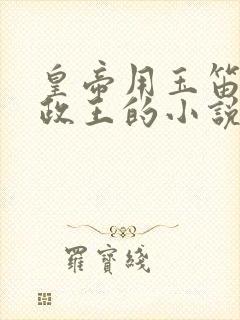 皇帝用玉笛
政王的小說
羅寶綫